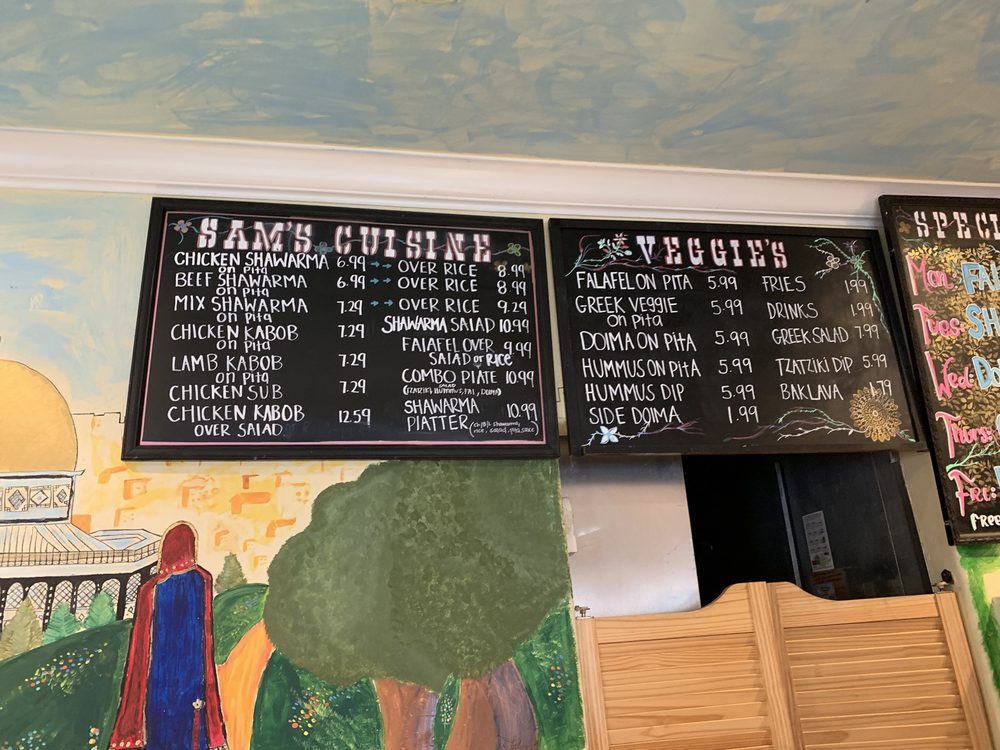 SAM'S CUISINE
CHICKEN SHAWARMA 6.99 →→ OVER RICE 8.99
on pita
BEEF SHAWARMA 6.99 →→ OVER RICE 8.99
on pita
MIX SHAWARMA 7.29 →→ OVER RICE 9.29
on pita
CHICKEN KABOB 7.29
on pita
LAMB KABOB 7.29
on pita
CHICKEN SUB 7.29
CHICKEN KABOB 12.59
OVER SALAD
SHAWARMA SALAD 10.99
FALAFEL OVER 9.99
SALAD or RICE
COMBO PLATE 10.99
SHAWARMA 10.99
PLATTER
VEGGIE'S
FALAFEL ON PITA 5.99
GREEK VEGGIE 5.99
on Pita
DOLMA ON PITA 5.99
HUMMUS ON PITA 5.99
HUMMUS DIP 5.99
SIDE DOLMA 1.99
FRIES 1.99
DRINKS 1.99
GREEK SALAD 7.99
TZATZIKI DIP 5.99
BAKLAVA 1.79
SPECI
Mon: FA
Tues: SH
Wed: Do
Thurs:
Fri:
FREE